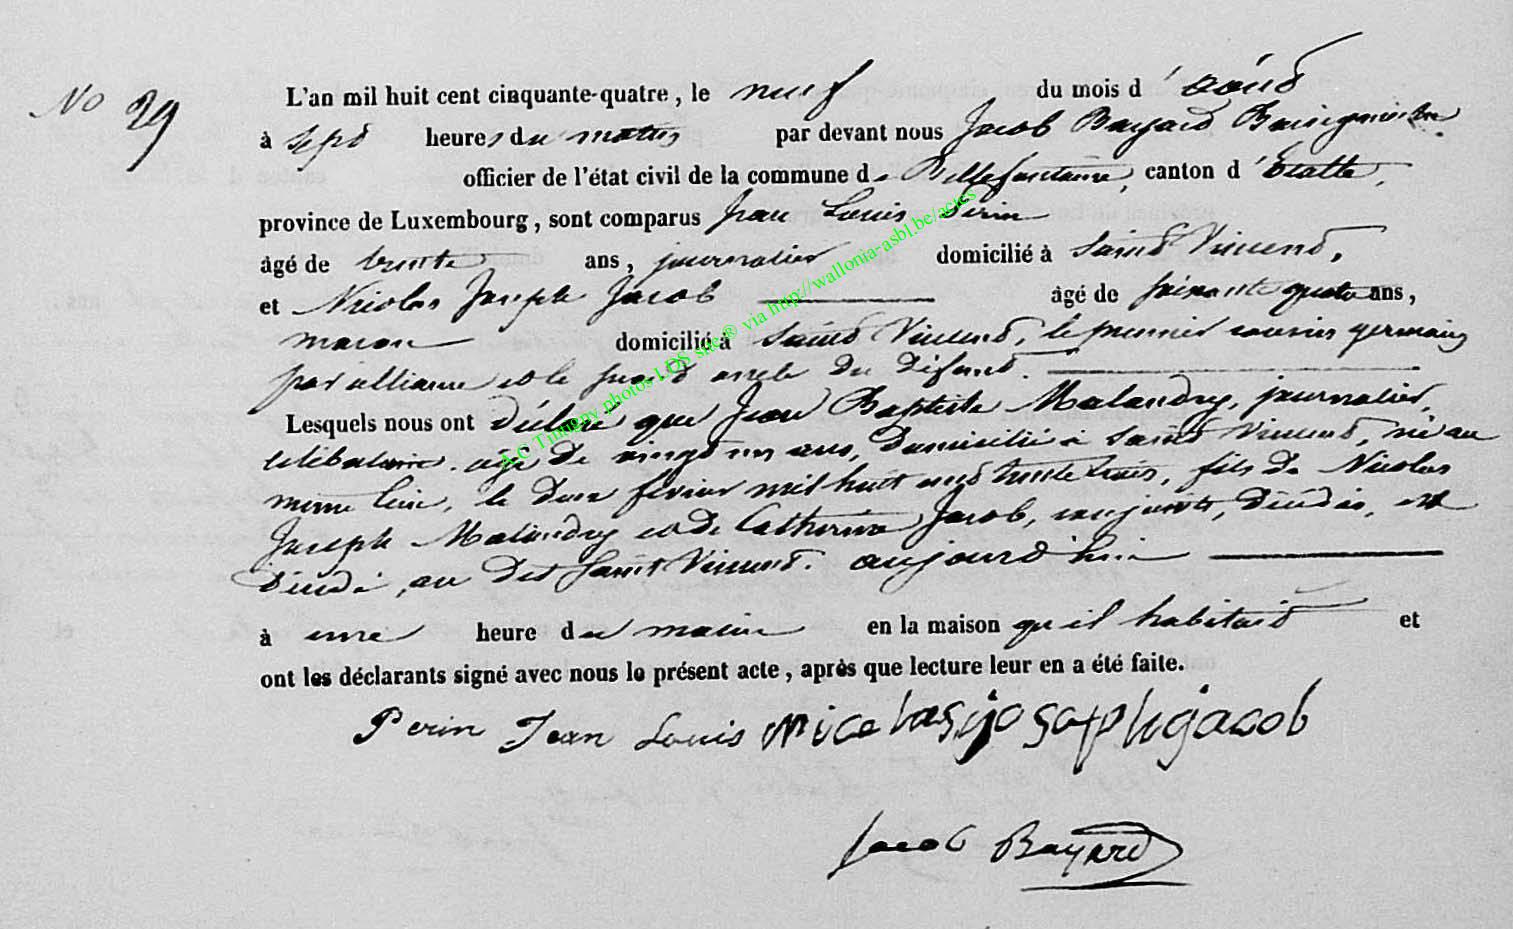 No 29
L'an mil huit cent cinquante-quatre, le neuf du mois d'août
à sept heures du matin par devant nous Jacob Bayard Bourgmestre
officier de l'état civil de la commune de Bellefontaine, canton d'Etalle,
province de Luxembourg, sont comparus Jean Louis Perin
âgé de trente ans, journalier domicilié à Saint Vincent,
et Nicolas Joseph Jacob âgé de soixante quatre ans,
macon domicilié à Saint Vincent, le premier cousin germain
par alliance et le second oncle du défunt.
Lesquels nous ont déclaré que Jean Baptiste Malandry, journalier,
celibataire, agé de vingt un ans, domicilié à Saint Vincent, né au
meme lieu, le deux fevrier mil huit cent trente trois, fils de Nicolas
Joseph Malandry et de Catherine Jacob, conjoints, décédés, est
décédé, au dit Saint Vincent. aujourd'hui
à une heure du matin en la maison qu'il habitait et
ont les déclarants signé avec nous le présent acte, après que lecture leur en a été faite.
Perin Jean Louis nicolas josoph jacob
Jacob Bayard
A.C Tintigny photos LDS site® via http://wallonia-asbl.be/actes